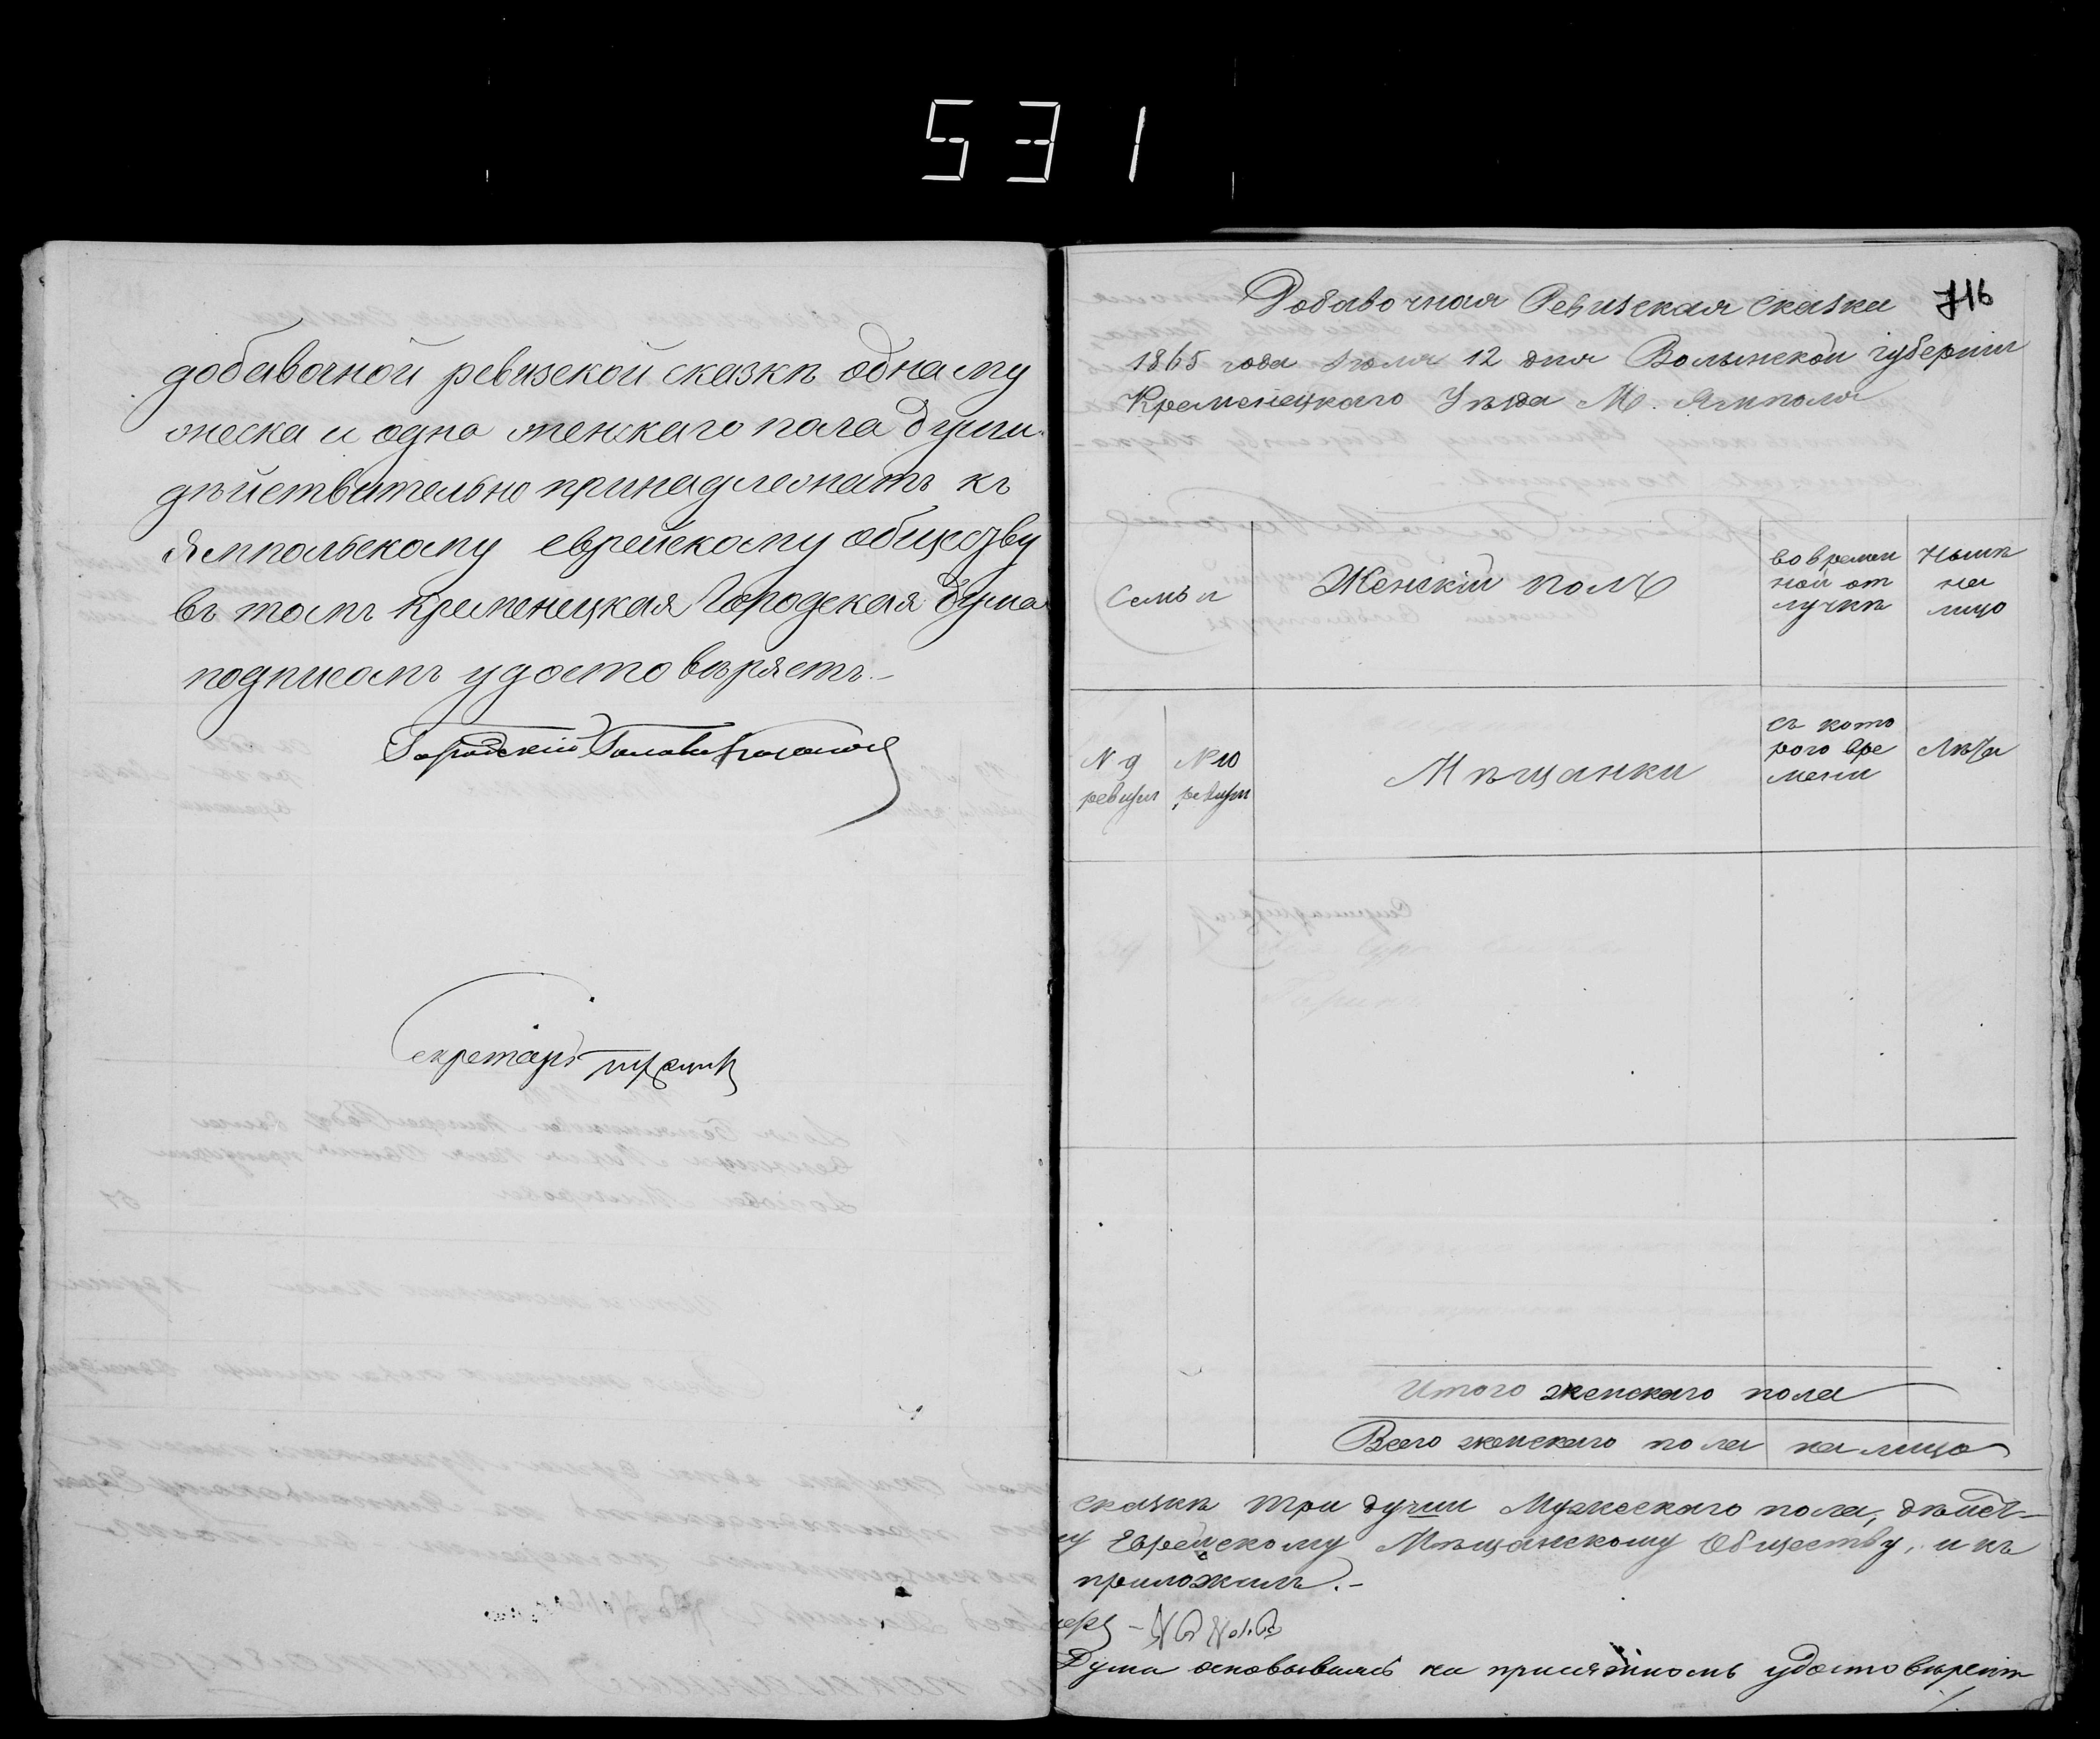 531
добавочной ревизской сказкѣ одна му
жеска и одна женскаго пола души
дѣйствительно принадлежатъ къ
Ямпольскому еврейскому обществу
въ томъ Кременецкая Городская Дума
подписомъ удостовѣряетъ.-
Городской Голова
Секретарь
716
Добавочная Ревизская сказка
1865 года Іюля 12 дня Волынской губерніи
Кременецкаго Уѣзда М. Ямполя
Семьи
Женскій полъ
во времен
ной от
лучкѣ
Нынѣ
на
лицо
N 9
ревизіи
N 10
ревизіи
Мѣщанки
съ кото
рого вре
мени
Лѣта
Итого женскаго пола
Всего женскаго пола на лицо
сказкѣ три души Мужескаго пола, дѣйст-
у Еврейскому Мѣщанскому Обществу, и къ
приложилъ.-
Дума основываясь на удостовѣряетъ